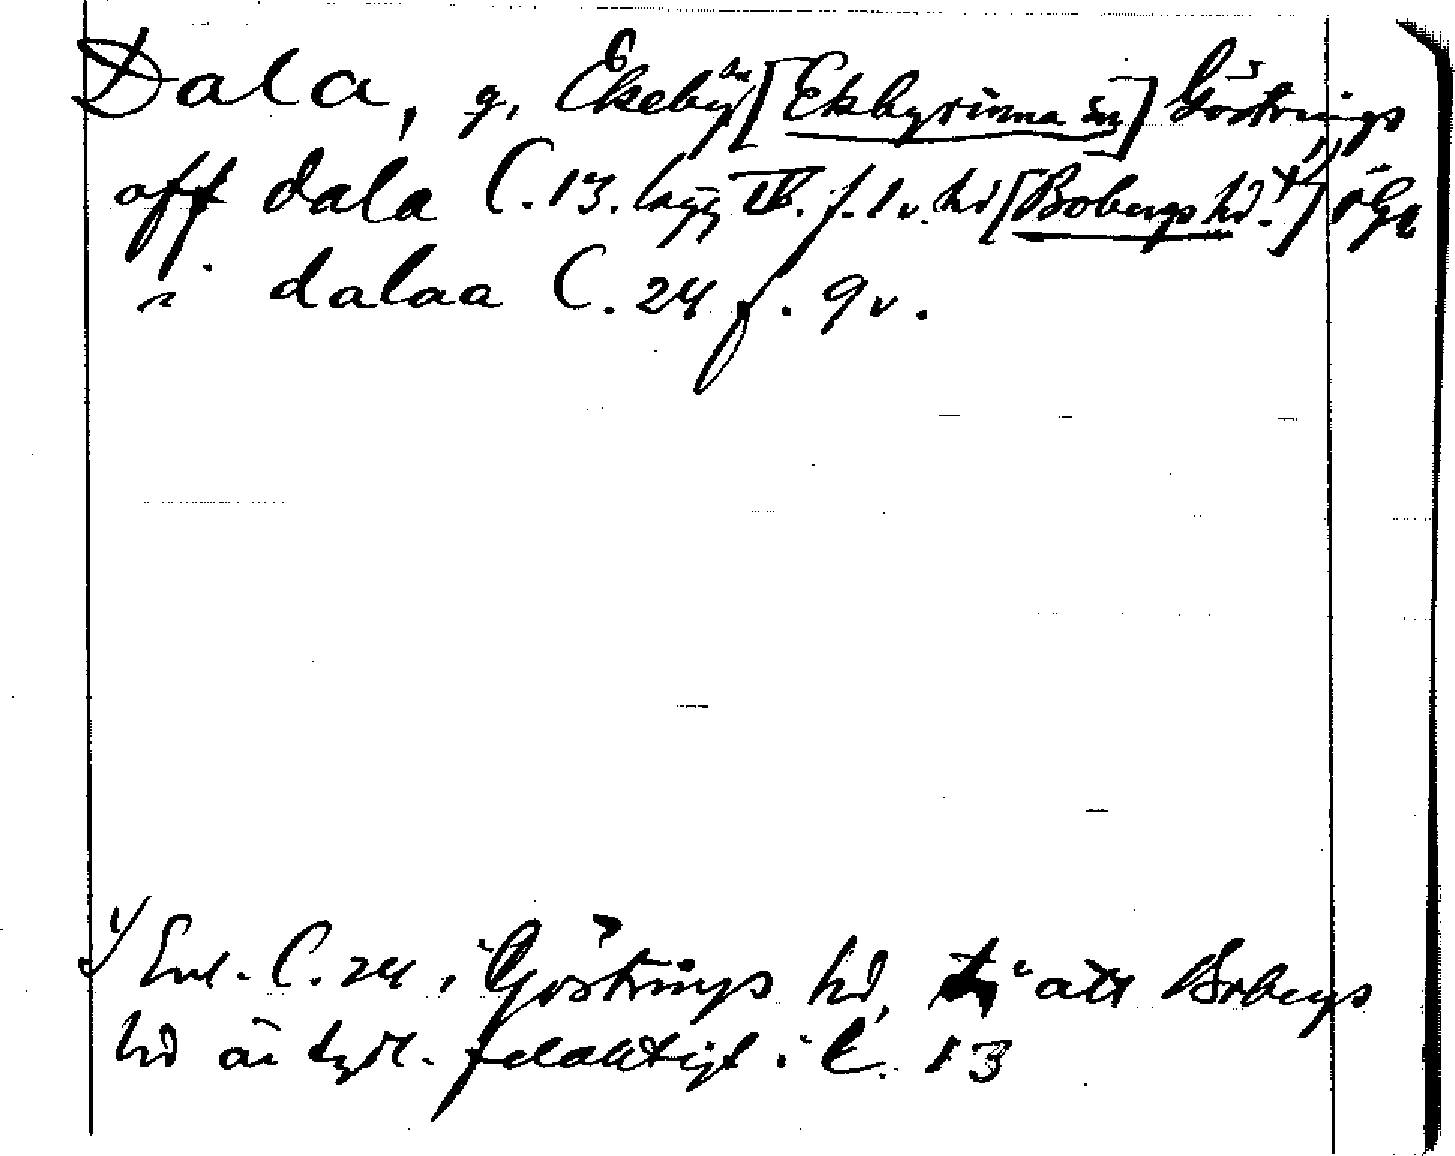 Dala, g, Ekeby sn [Ekbyrinna sn] Göstrings
off dala C. 13. lägg IV. f. 1 v. hd [Bobergs hd. 1)] Ögl
i dalaa C. 24 f. 9 v.
1) Enl. C. 24 i Göstrings hd, att Bobergs
hd är tydl. felaktigt i C. 13